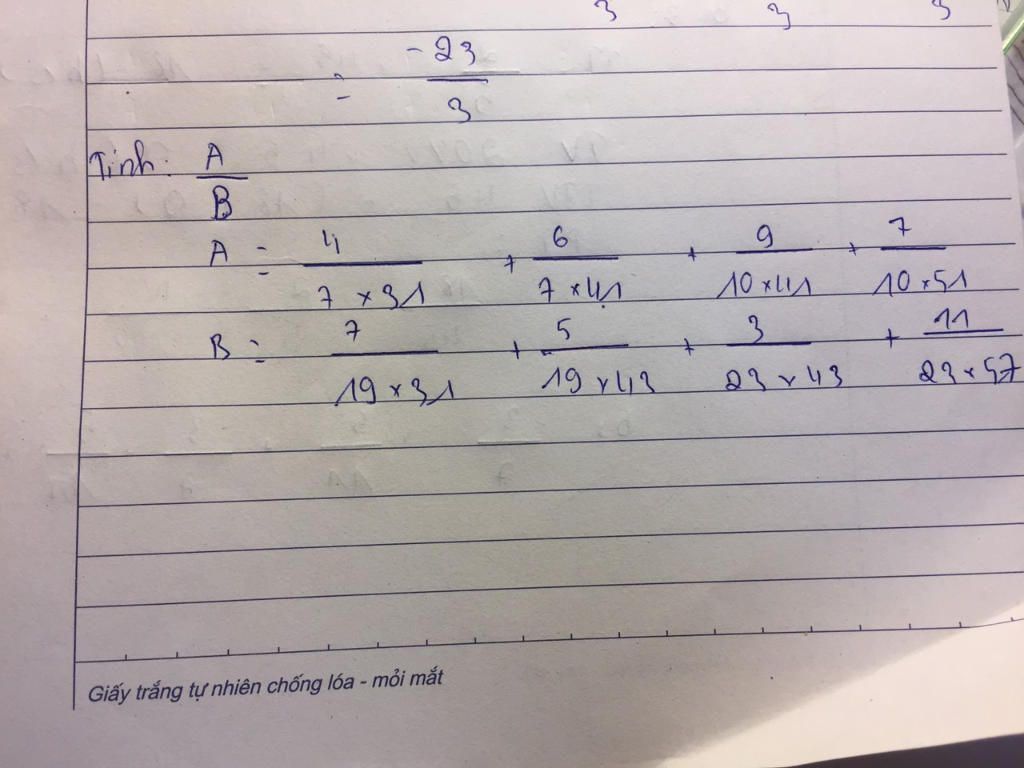 3 3 3
= -23/3
Tính: A/B
A = 4/(7 × 31) + 6/(7 × 41) + 9/(10 × 41) + 7/(10 × 51)
B = 7/(19 × 31) + 5/(19 × 43) + 3/(23 × 43) + 11/(23 × 57)
Giấy trắng tự nhiên chống lóa - mỏi mắt